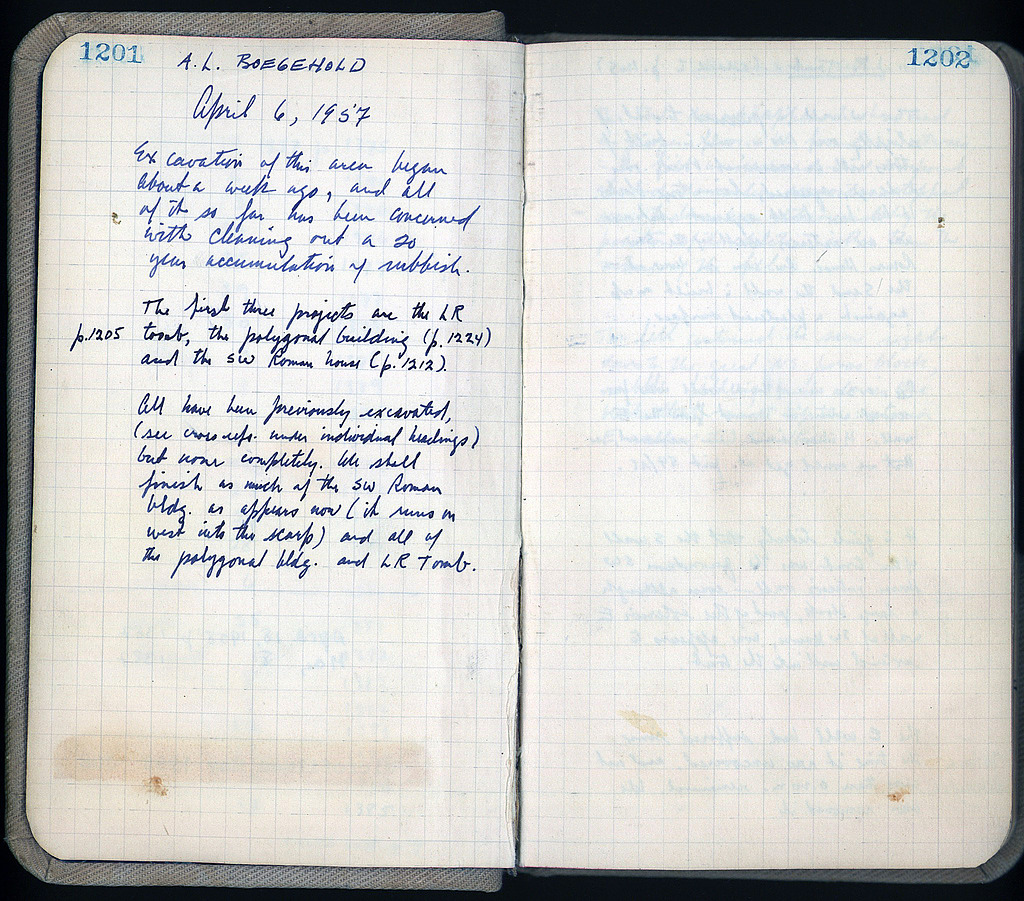 1201
A. L. BOEGEHOLD
April 6, 1957
Excavation of this area began
about a week ago, and all
of it so far has been concerned
with cleaning out a 20
year accumulation of rubbish.
The first three projects are the LR
p.1205 tomb, the polygonal building (p. 1224)
and the SW Roman house (p. 1212).
All have been previously excavated,
(see cross-refs. under individual headings)
but none completely. We shall
finish as much of the SW Roman
bldg. as appears now (it runs on
west into the scarp) and all of
the polygonal bldg. and LR Tomb.
1202